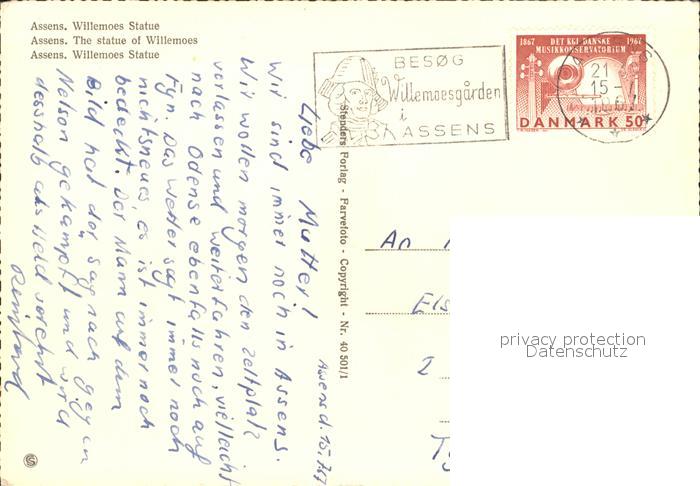 Assens. Willemoes Statue
Assens. The statue of Willemoes
Assens. Willemoes Statue
BESØG
Willemoesgården
i
ASSENS
1867 DET KGL DANSKE 1967
MUSIKKONSERVATORIUM
DANMARK 50
21
15-
Stenders Forlag - Farvefoto - Copyright - Nr. 40 501/1
Assens d. 15.7.67
Liebe Mutter!
Wir sind immer noch in Assens.
Wir wollen morgen den Zeltplatz
verlassen und weiterfahren, vielleicht
nach Odense ebenfalls noch auf
Fyn. Das Wetter sagt immer noch
nichts neues, es ist immer noch
bedeckt. Der Mann auf dem
Bild hat der Sag nach gegen
Nelson gekämpft und wird
desshalb als Held verehrt
An
Els
2
privacy protection
Datenschutz